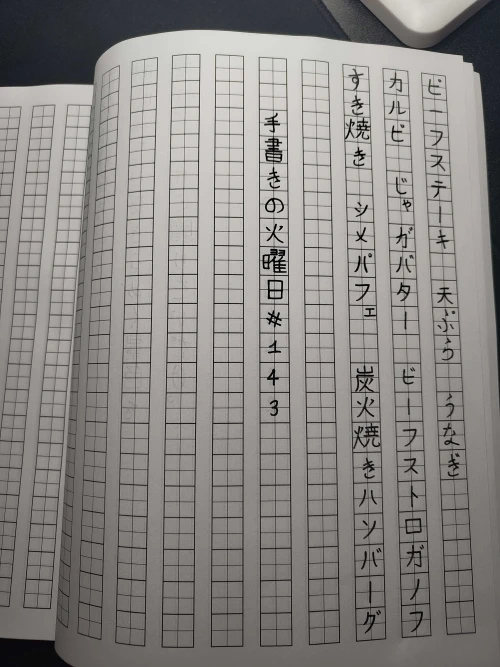 ビーフステーキ　天ぷら　うなぎ
カルビ　じゃがバター　ビーフストロガノフ
すき焼き　シメパフェ　炭火焼きハンバーグ
手書きの火曜日#143